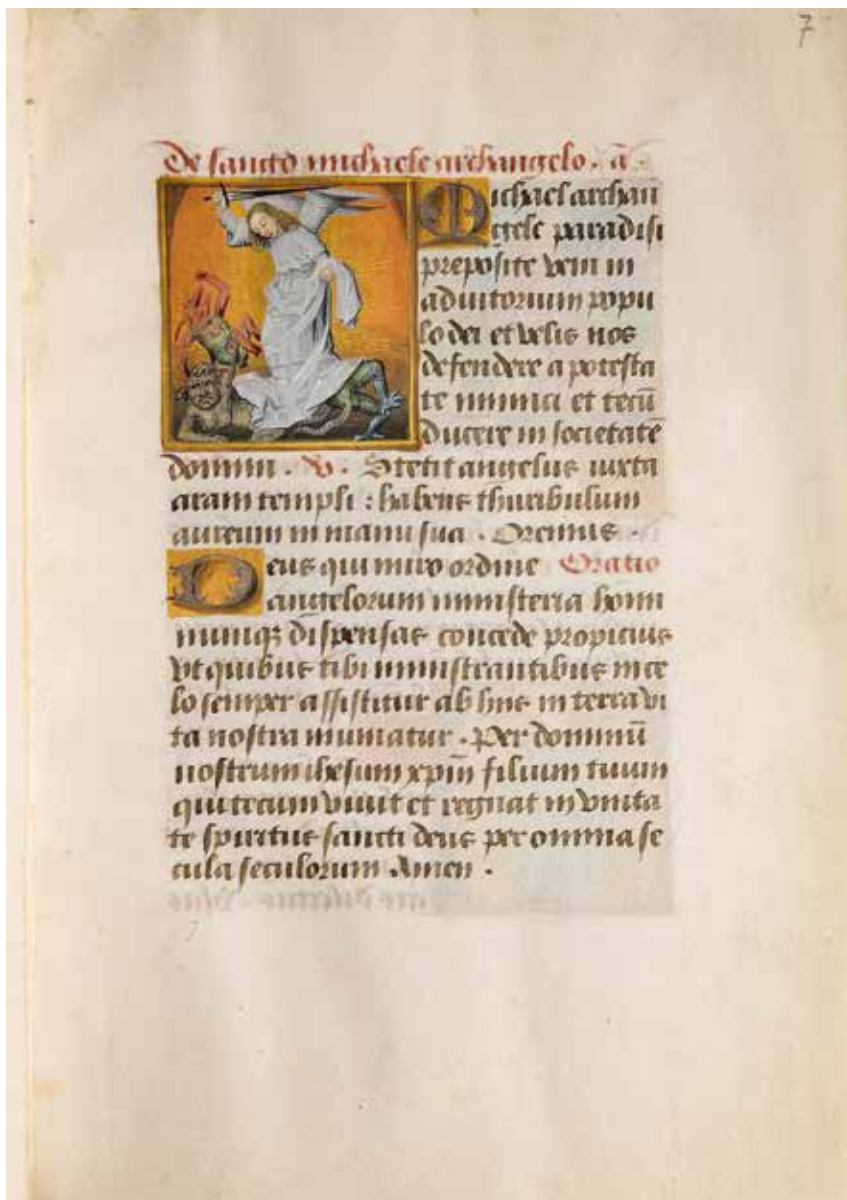 7
De sancto michaele archangelo . a̅ .
Michael archan
gele paradisi
preposite veni in
adiutorium popu
lo dei et velis nos
defendere a potesta
te inimici et tecu̅
ducere in societate̅
domini . V . Stetit angelus iuxta
aram templi : habens thuribulum
aureum in manu sua . Oremus .
Deus qui miro ordine Oratio
angelorum ministeria homi
numqꝫ dispensas concede propicius
vt quibus tibi ministrantibus in ce
lo semper assistitur ab hiis in terra vi
ta nostra muniatur . Per dominu̅
nostrum ihesum xp̅m filium tuum
qui tecum viuit et regnat in vnita
te spiritus sancti deus per omnia se
cula seculorum Amen .